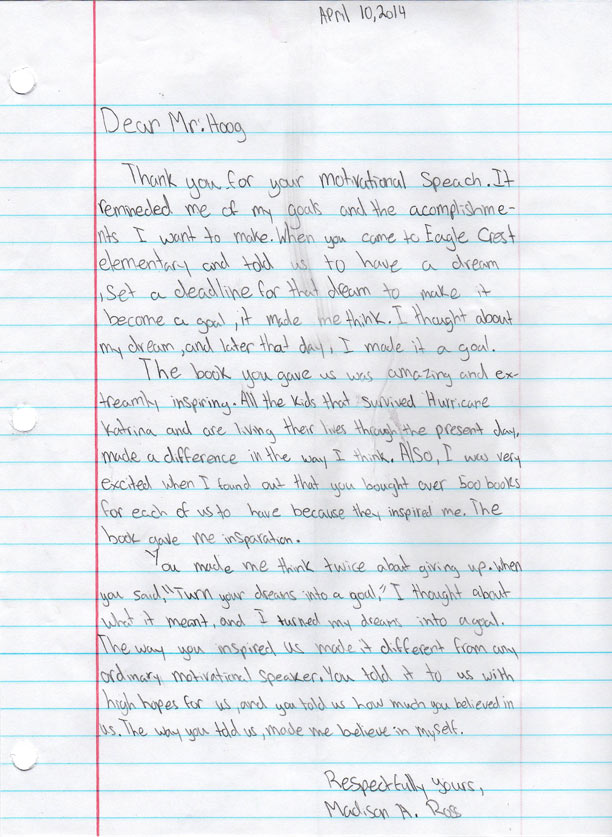 April 10, 2014
Dear Mr. Hoog
Thank you for your motivational Speach. It
remineded me of my goals and the acomplishme-
nts I want to make. When you came to Eagle Crest
elementary and told us to have a dream
, set a deadline for that dream to make it
become a goal, it made me think. I thought about
my dream, and later that day, I made it a goal.
The book you gave us was amazing and ex-
treamly inspiring. All the kids that survived Hurricane
Katrina and are living their lives through the present day,
made a difference in the way I think. Also, I was very
excited when I found out that you bought over 500 books
for each of us to have because they inspired me. The
book gave me insparation.
You made me think twice about giving up. When
you said, "Turn your dreams into a goal," I thought about
what it meant, and I turned my dreams into a goal.
The way you inspired us made it different from any
ordinary motivational speaker. You told it to us with
high hopes for us, and you told us how much you believed in
us. The way you told us, made me believe in myself.
Respectfully yours,
Madison A. Ross